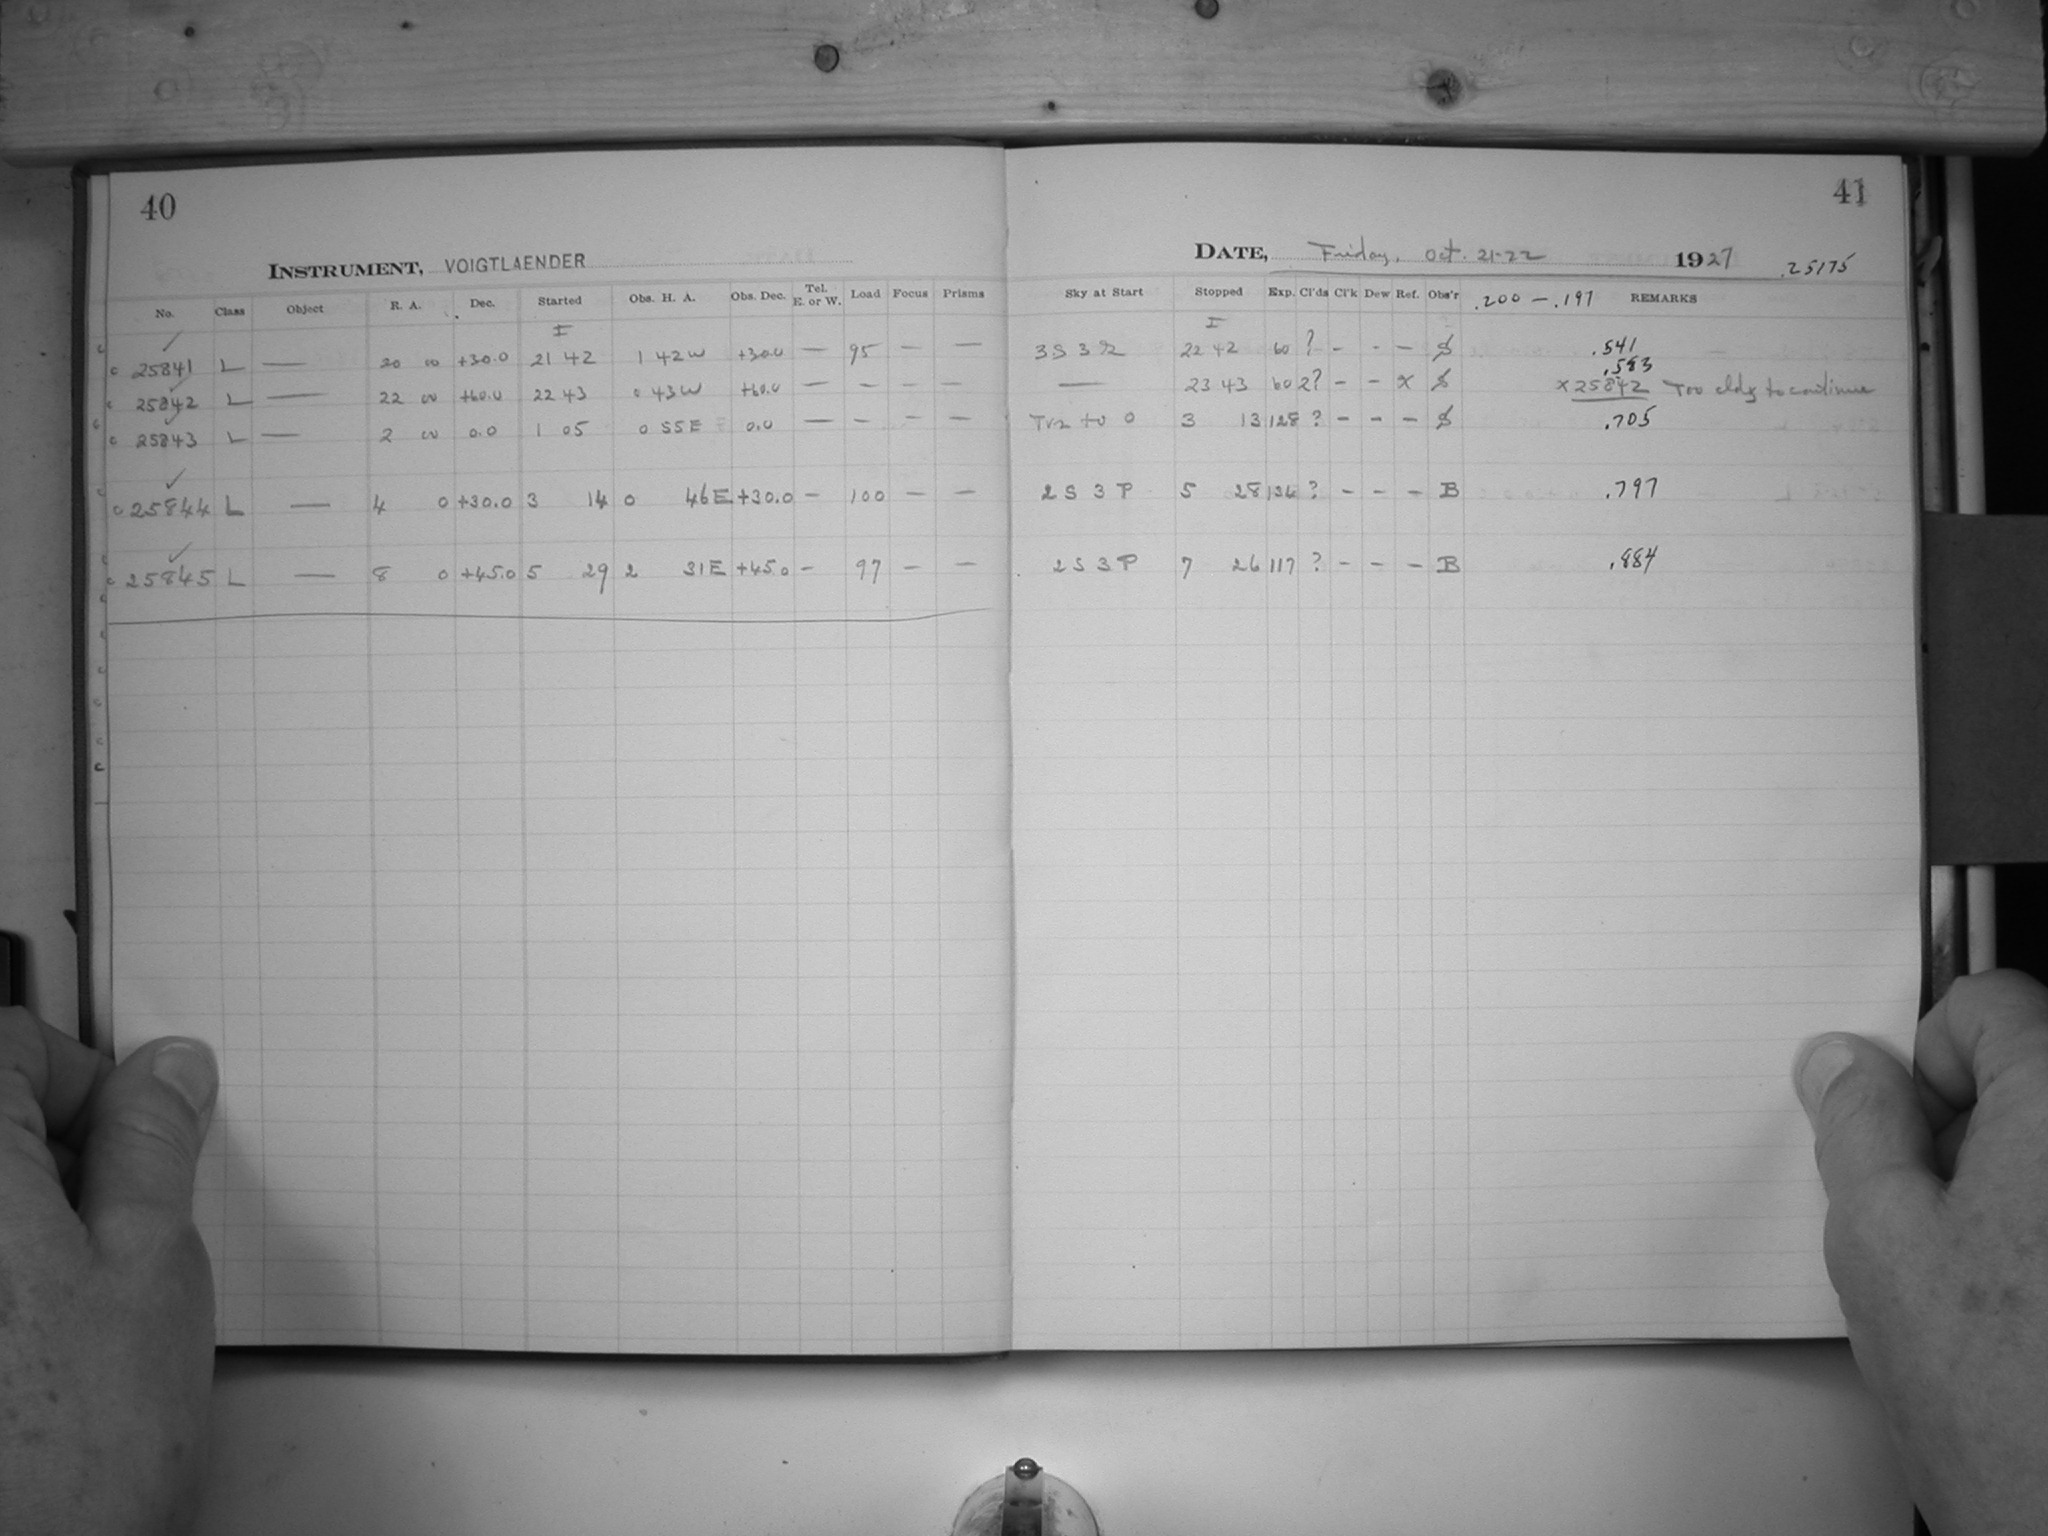 40
INSTRUMENT, VOIGTLAENDER
No. Class Object R. A. Dec. Started Obs. H. A. Obs. Dec. Tel. E. or W. Load Focus Prisms
I
25841 L — 20 00 +30.0 21 42 1 42W +30.0 — 95 — —
25842 L — 22 00 +60.0 22 43 0 43W +60.0 — — — —
25843 L — 2 00 0.0 1 05 0 55E 0.0 — — — —
25844 L — 4 0 +30.0 3 14 0 46E +30.0 — 100 — —
25845 L — 8 0 +45.0 5 29 2 31E +45.0 — 97 — —
41
DATE, Friday, Oct. 21-22 1927 .25175
Sky at Start Stopped Exp. Cl'ds Cl'k Dew Ref. Obs'r .200 — .197 REMARKS
I
3 S 3 22 42 60 ? - - - S .541
.583
— 23 43 60 2? - - x S x 25842 Too cldy to continue
to 0 3 13 128 ? - - - S .705
2 S 3 P 5 28 134 ? - - - B .797
2 S 3 P 7 26 117 ? - - - B .884